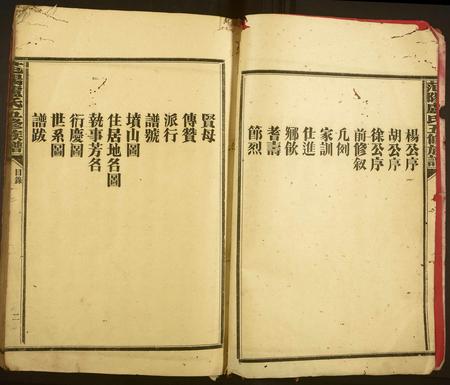 范陽盧氏五修族譜
楊公序
胡公序
徐公序
前修叙
凡例
家訓
仕進
鄉飲
耆壽
節烈
賢母
傳贊
派行
譜號
墳山圖
住居地名圖
執事芳名
衍慶圖
世系圖
譜跋
盧氏五修族譜
目錄
二